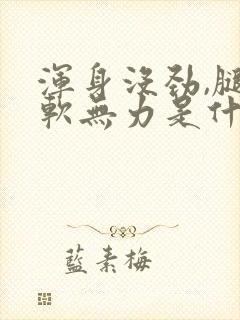 渾身沒勁,腿
軟無力是什
藍素梅